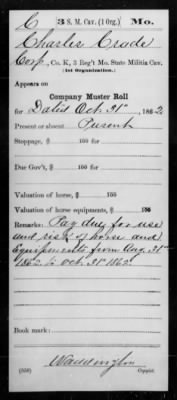 C 3 S. M. Cav. (1 Org.) Mo.
Charles Crode
Corp., Co. K, 3 Reg't Mo. State Militia Cav.
(1st Organization.)
Appears on
Company Muster Roll
for Dated Oct. 31st, 1862
Present or absent Present
Stoppage, $ 100 for
Due Gov't, $ 100 for
Valuation of horse, $ 100
Valuation of horse equipments, $ 100
Remarks: Pay due for use
and risk of horse and
Equipments from Aug. 31st
1862 to Oct. 31st 1862
Book mark:
Waddington
(358) Copyist.